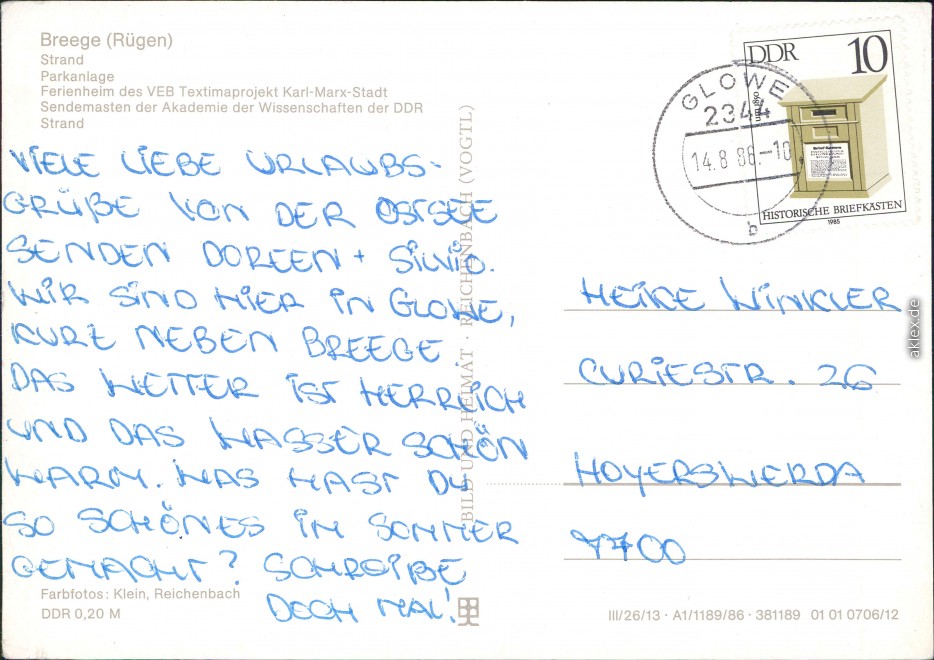 Breege (Rügen)
Strand
Parkanlage
Ferienheim des VEB Textimaprojekt Karl-Marx-Stadt
Sendemasten der Akademie der Wissenschaften der DDR
Strand
VIELE LIEBE URLAUBS-
GRÜßE VON DER OSTSEE
SENDEN DOREEN + SILVIO.
WIR SIND HIER IN GLOWE,
KURZ NEBEN BREEGE
DAS WETTER IST HERRLICH
UND DAS WASSER SCHÖN
WARM. WAS HAST DU
SO SCHÖNES IM SOMMER
GEMACHT? SCHREIBE
DOCH MAL!
Farbfotos: Klein, Reichenbach
DDR 0,20 M
BILD UND HEIMAT · REICHENBACH (VOGTL)
DDR 10
um 1850
HISTORISCHE BRIEFKÄSTEN
1985
GLOWE
2344
14.8.86.-10
b
HEIKE WINKLER
CURIESTR. 26
HOYERSWERDA
7700
III/26/13 · A1/1189/86 · 381189 01 01 0706/12
aklex.de